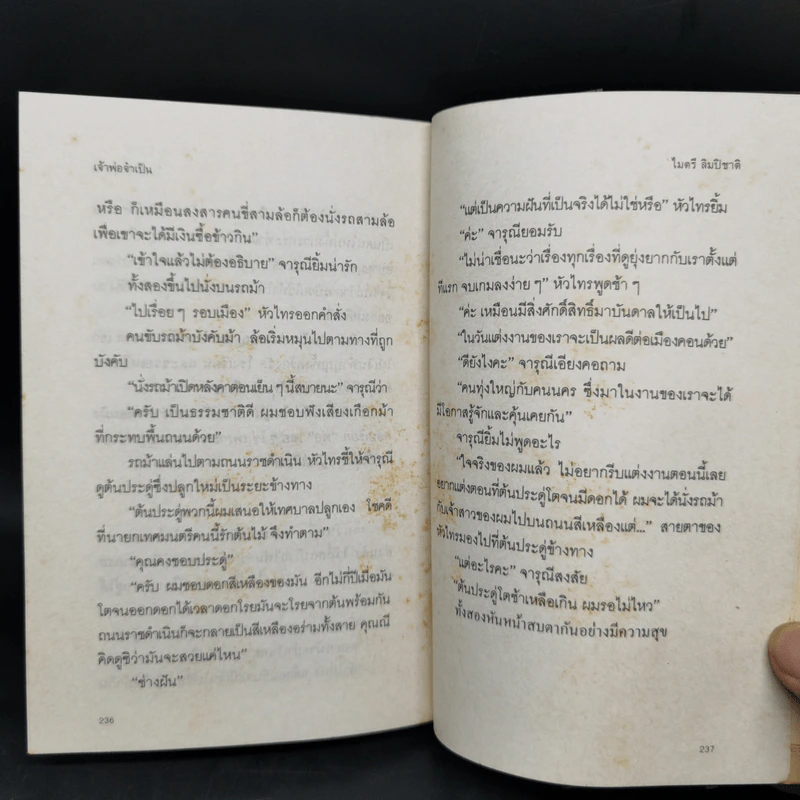 เจ้าพ่อจำเป็น
หรือ ก็เหมือนสงสารคนขี่สามล้อก็ต้องนั่งรถสามล้อ
เพื่อเขาจะได้มีเงินซื้อข้าวกิน”
“เข้าใจแล้วไม่ต้องอธิบาย” จารุณียิ้มน่ารัก
ทั้งสองขึ้นไปนั่งบนรถม้า
“ไปเรื่อยๆ รอบเมือง” หัวไทรออกคำสั่ง
คนขับรถม้าบังคับม้า ล้อเริ่มหมุนไปตามทางที่ถูก
บังคับ
“นั่งรถม้าเปิดหลังคาตอนเย็นๆ นี้สบายนะ” จารุณีว่า
“ครับ เป็นธรรมชาติดี ผมชอบฟังเสียงเกือกม้า
ที่กระทบพื้นถนนด้วย”
รถม้าแล่นไปตามถนนราชดำเนิน หัวไทรชี้ให้จารุณี
ดูต้นประดู่ซึ่งปลูกใหม่เป็นระยะข้างทาง
“ต้นประดู่พวกนี้ผมเสนอให้เทศบาลปลูกเอง โชคดี
ที่นายกเทศมนตรีคนนี้รักต้นไม้ จึงทำตาม”
“คุณคงชอบประดู่”
“ครับ ผมชอบดอกสีเหลืองของมัน อีกไม่กี่ปีเมื่อมัน
โตจนออกดอกได้เวลาดอกโรยมันจะโรยจากต้นพร้อมกัน
ถนนราชดำเนินก็จะกลายเป็นสีเหลืองอร่ามทั้งสาย คุณณี
คิดดูซิว่ามันจะสวยแค่ไหน”
“ช่างฝัน”
236
ไมตรี ลิมปิชาติ
“แต่เป็นความฝันที่เป็นจริงได้ไม่ใช่หรือ” หัวไทรยิ้ม
“ค่ะ” จารุณียอมรับ
“ไม่น่าเชื่อนะว่าเรื่องทุกเรื่องที่ดูยุ่งยากกับเราตั้งแต่
ที่แรก จบเกมลงง่าย ๆ” หัวไทรพูดช้า ๆ
“ค่ะ เหมือนมีสิ่งศักดิ์สิทธิ์มาบันดาลให้เป็นไป”
“ในวันแต่งงานของเราจะเป็นผลดีต่อเมืองคอนด้วย”
“ดียังไงคะ” จารุณีเอียงคอถาม
“คนทุ่งใหญ่กับคนนคร ซึ่งมาในงานของเราจะได้
มีโอกาสรู้จักและคุ้นเคยกัน”
จารุณียิ้มไม่พูดอะไร
“ใจจริงของผมแล้ว ไม่อยากรีบแต่งงานตอนนี้เลย
อยากแต่งตอนที่ต้นประดู่โตจนมีดอกได้ ผมจะได้นั่งรถม้า
กับเจ้าสาวของผมไปบนถนนสีเหลืองแต่...” สายตาของ
หัวไทรมองไปที่ต้นประดู่ข้างทาง
“แต่อะไรคะ” จารุณีสงสัย
“ต้นประดู่โตช้าเหลือเกิน ผมรอไม่ไหว”
ทั้งสองหันหน้าสบตากันอย่างมีความสุข
237